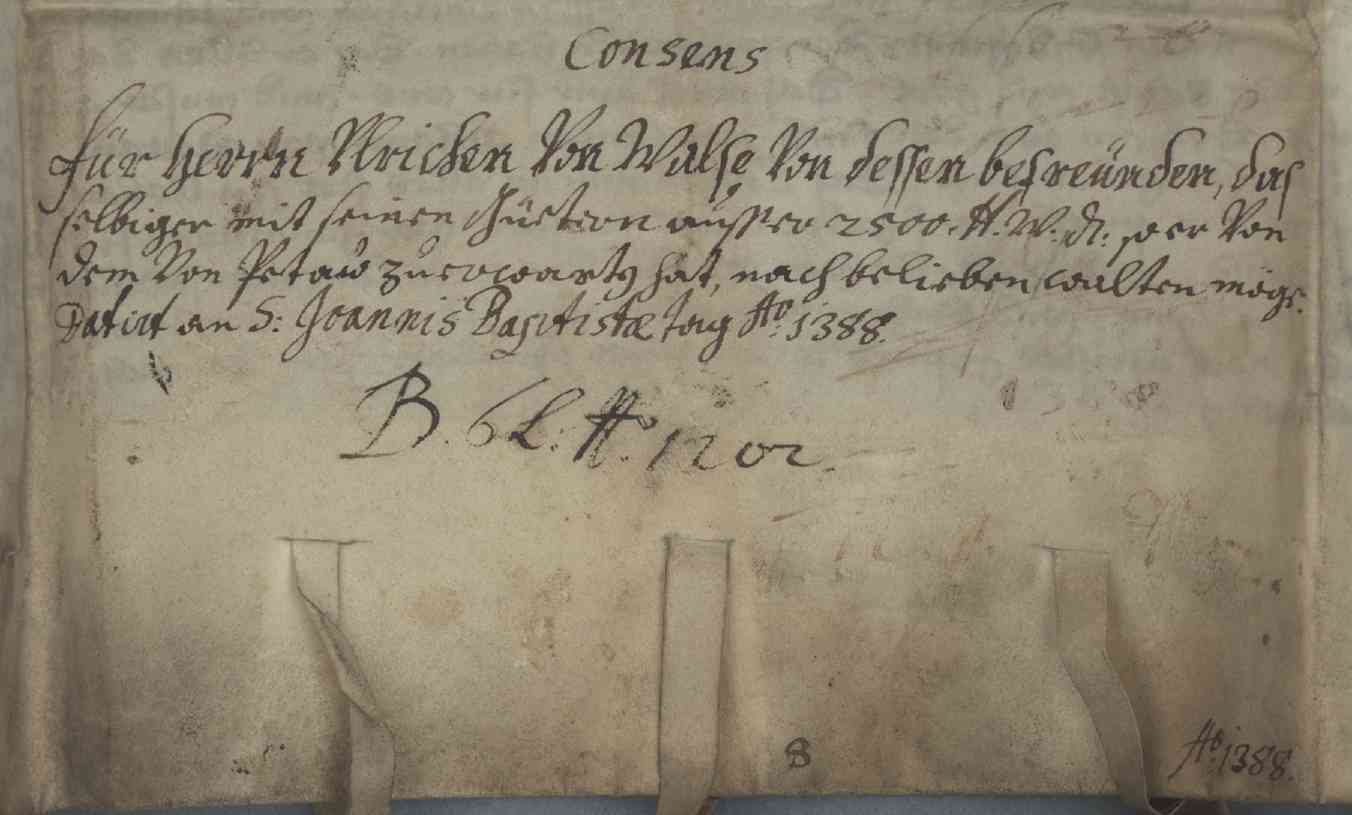 Consens
für herrn Ulrichen Von Walse Von dessen befreünden, das
selbiger mit seinen Güettern ausser 2500. ℔. W. ₰. so er Von
dem Von Petaw zuerwarttn hat, nach belieben walten möge.
Datirt an S: Joannis Baptistæ tag Aº. 1388.
1388
B. 62. N. 1202.
8
Aº. 1388.